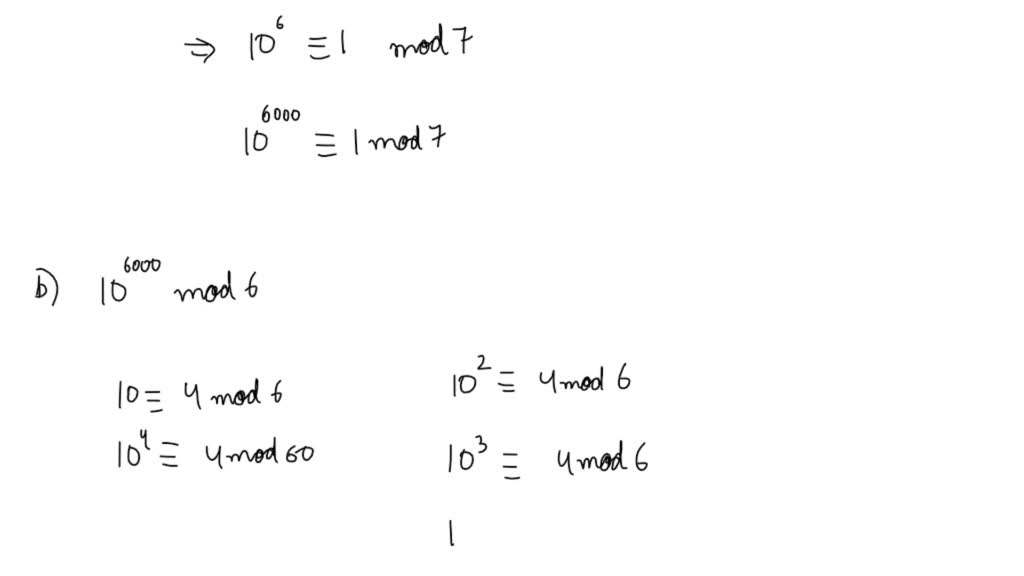 ⇒ 10⁶ ≡ 1 mod 7
10⁶⁰⁰⁰ ≡ 1 mod 7
b) 10⁶⁰⁰⁰ mod 6
10 ≡ 4 mod 6 10² ≡ 4 mod 6
10⁴ ≡ 4 mod 60 10³ ≡ 4 mod 6
1